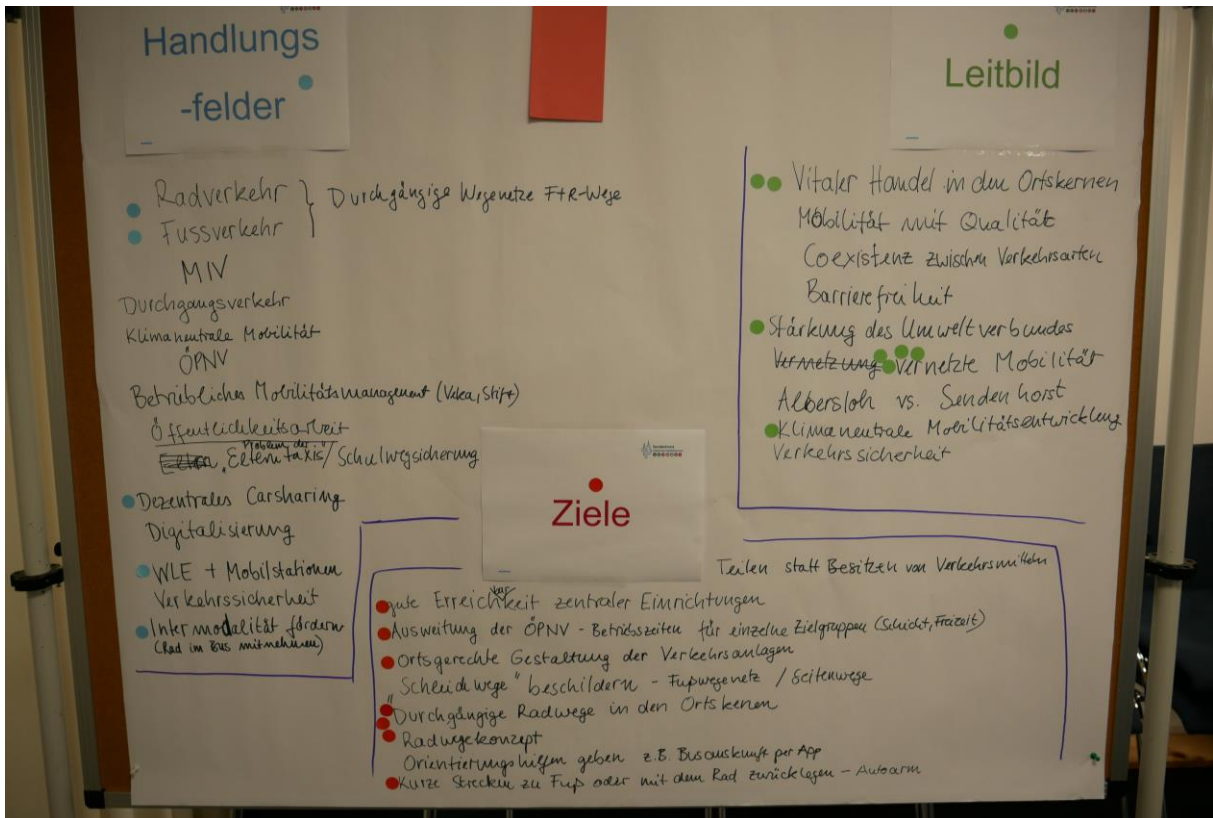 Handlungs
-felder
Radverkehr } Durchgängige Wegenetze F+R-Wege
Fussverkehr
MIV
Durchgangsverkehr
Klimaneutrale Mobilität
ÖPNV
Betriebliches Mobilitätsmanagement (Veka, Stift)
Öffentlichkeitsarbeit
Problem der
Eltern „Elterntaxis"/Schulwegsicherung
Dezentrales Carsharing
Digitalisierung
WLE + Mobilstationen
Verkehrssicherheit
Intermodalität fördern
(Rad im Bus mitnehmen)
Leitbild
Vitaler Handel in den Ortskernen
Mobilität mit Qualität
Coexistenz zwischen Verkehrsarten
Barrierefreiheit
Stärkung des Umweltverbundes
Vermetzung Vernetzte Mobilität
Albersloh vs. Sendenhorst
Klimaneutrale Mobilitätsentwicklung
Verkehrssicherheit
Ziele
Teilen statt Besitzen von Verkehrsmitteln
bar
gute Erreichkeit zentraler Einrichtungen
Ausweitung der ÖPNV - Betriebszeiten für einzelne Zielgruppen (Schicht, Freizeit)
Ortsgerechte Gestaltung der Verkehrsanlagen
„Schleichwege" beschildern - Fußwegenetz / Seitenwege
Durchgängige Radwege in den Ortskenen
Radwegekonzept
Orientierungshilfen geben z.B. Busauskunft per App
Kurze Strecken zu Fuß oder mit dem Rad zurücklegen - Autoarm